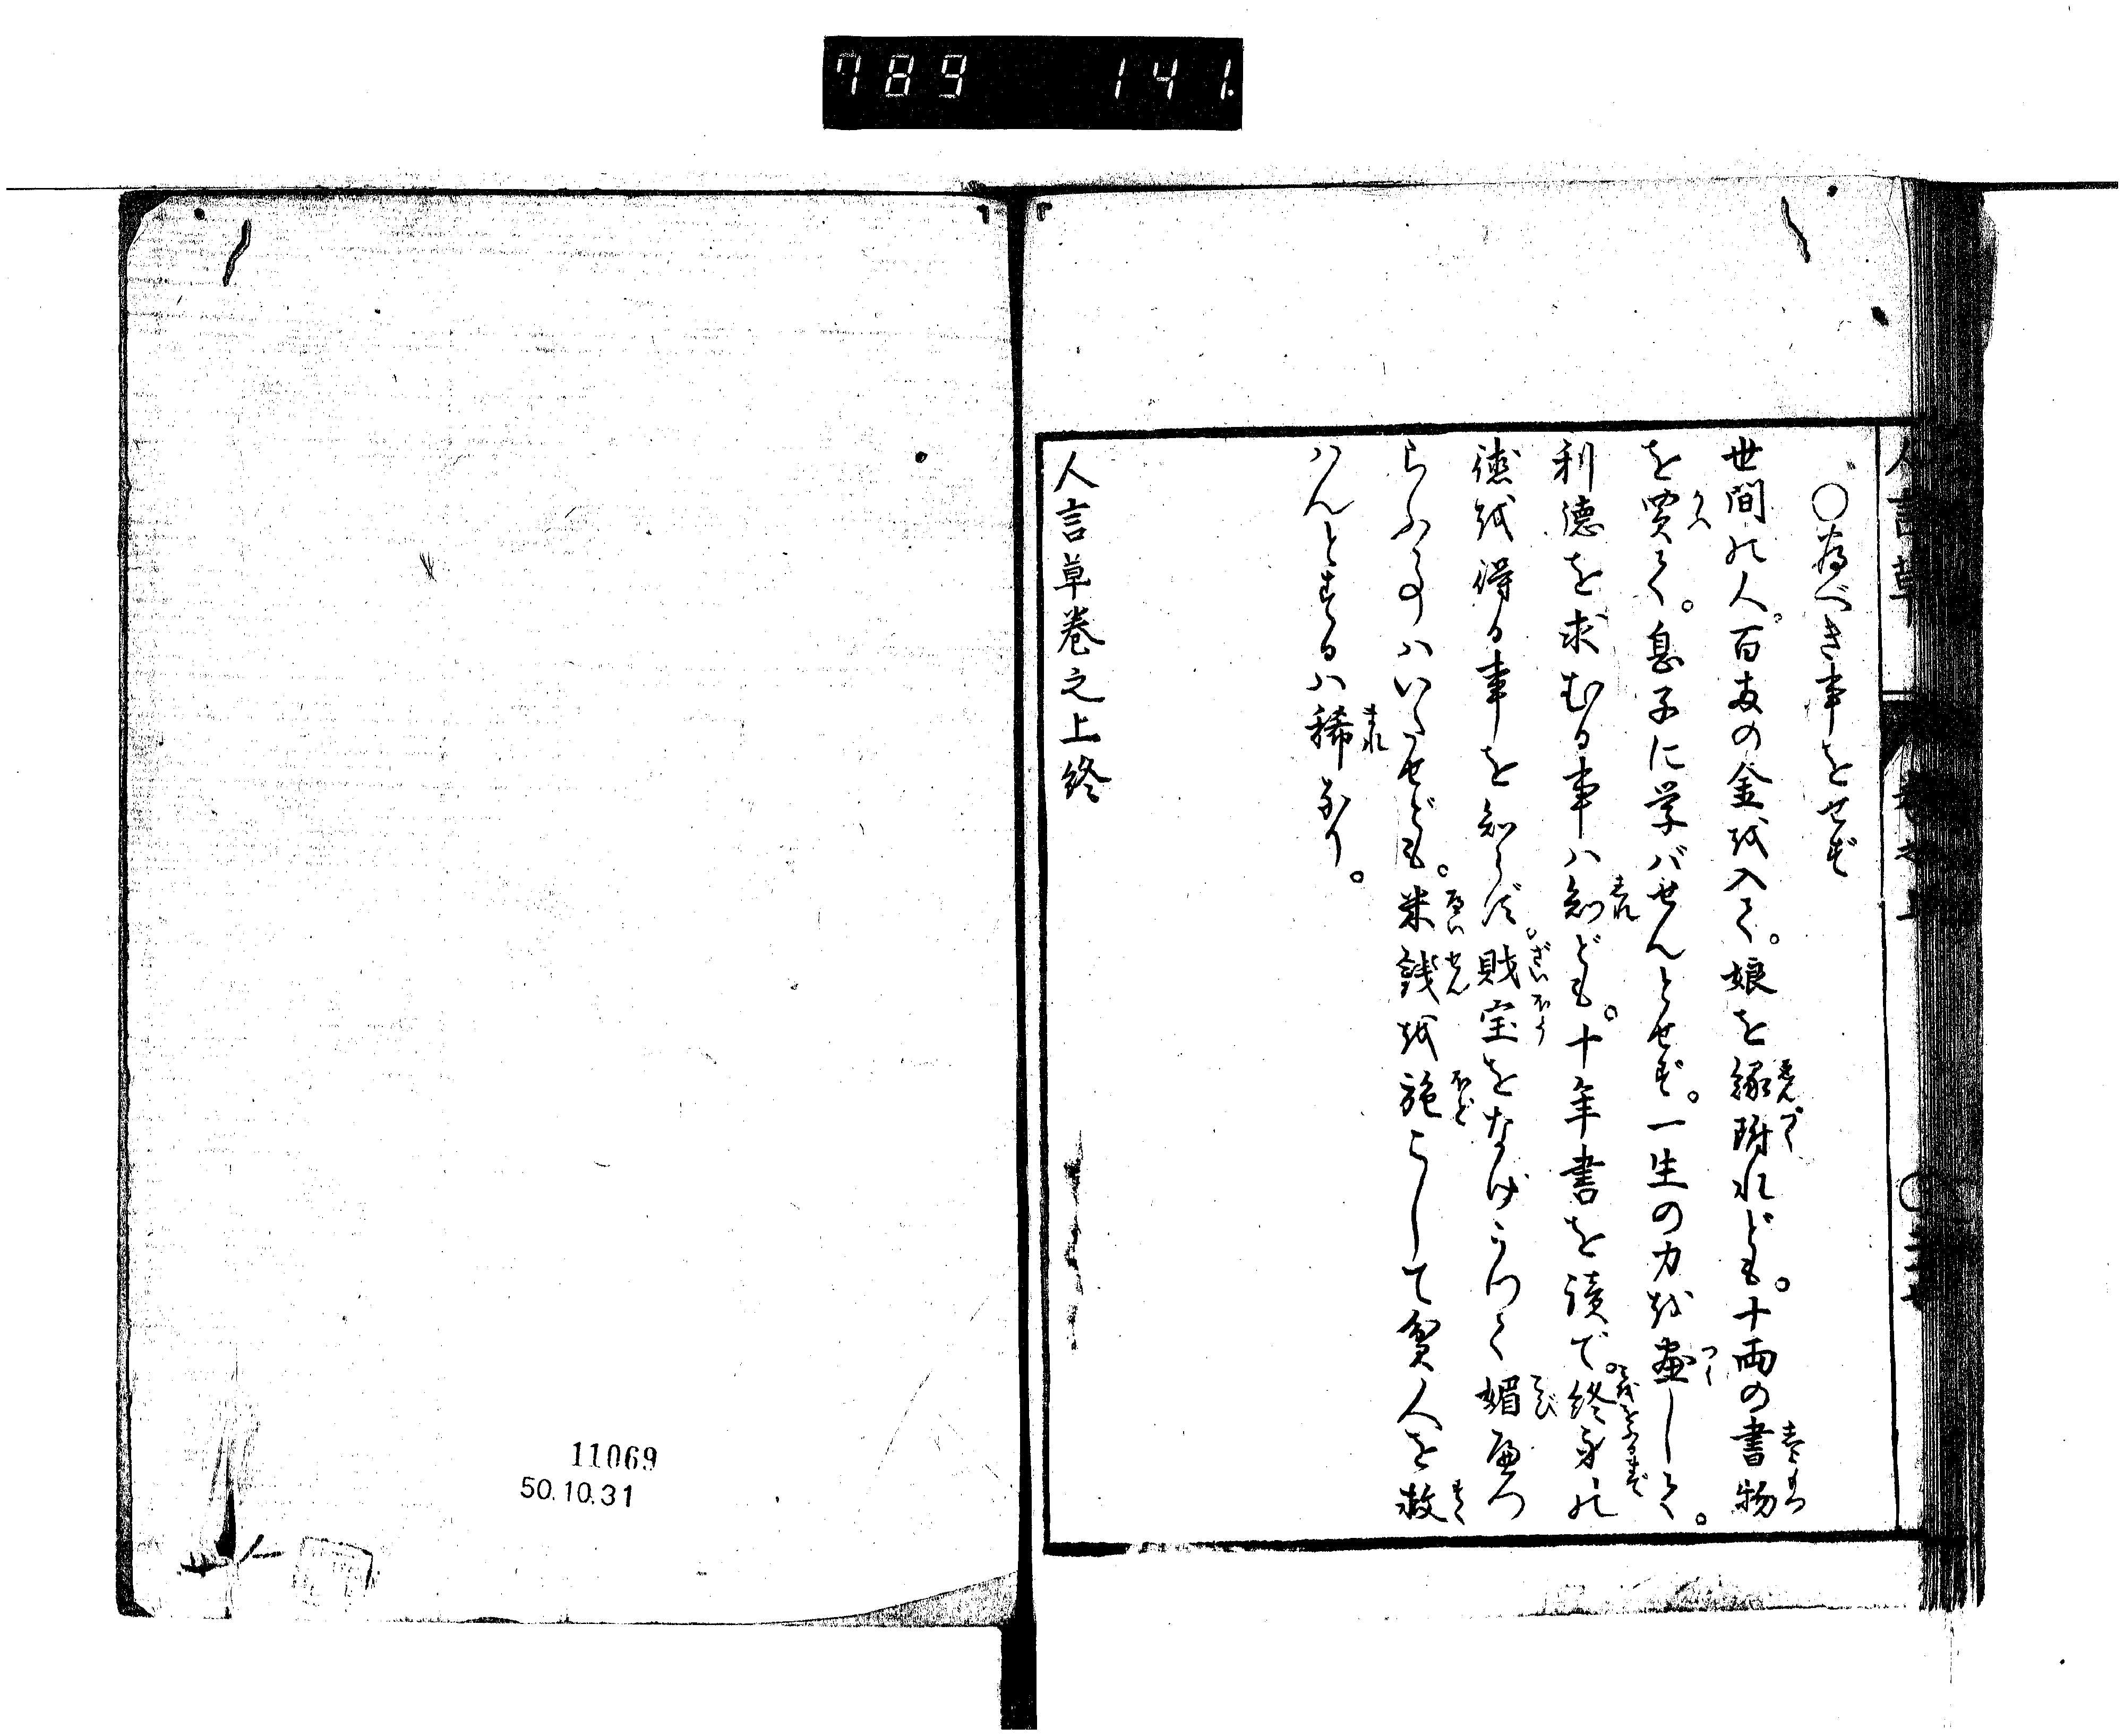 789 141.
人言草
○為べき事をせず
世間の人。百両の金を入て。娘を縁附れども。十両の書物
を買て。息子に学バせんとせず。一生の力を尽して。
利徳を求むる事ハ知ども。十年書を読で。終身の
徳を得る事を知らず。財宝をなげうつて媚へつ
らふ事ハいたせども。米銭を施こして貧人を救
ハんとするハ稀なり。
人言草巻之上終
11069
50.10.31